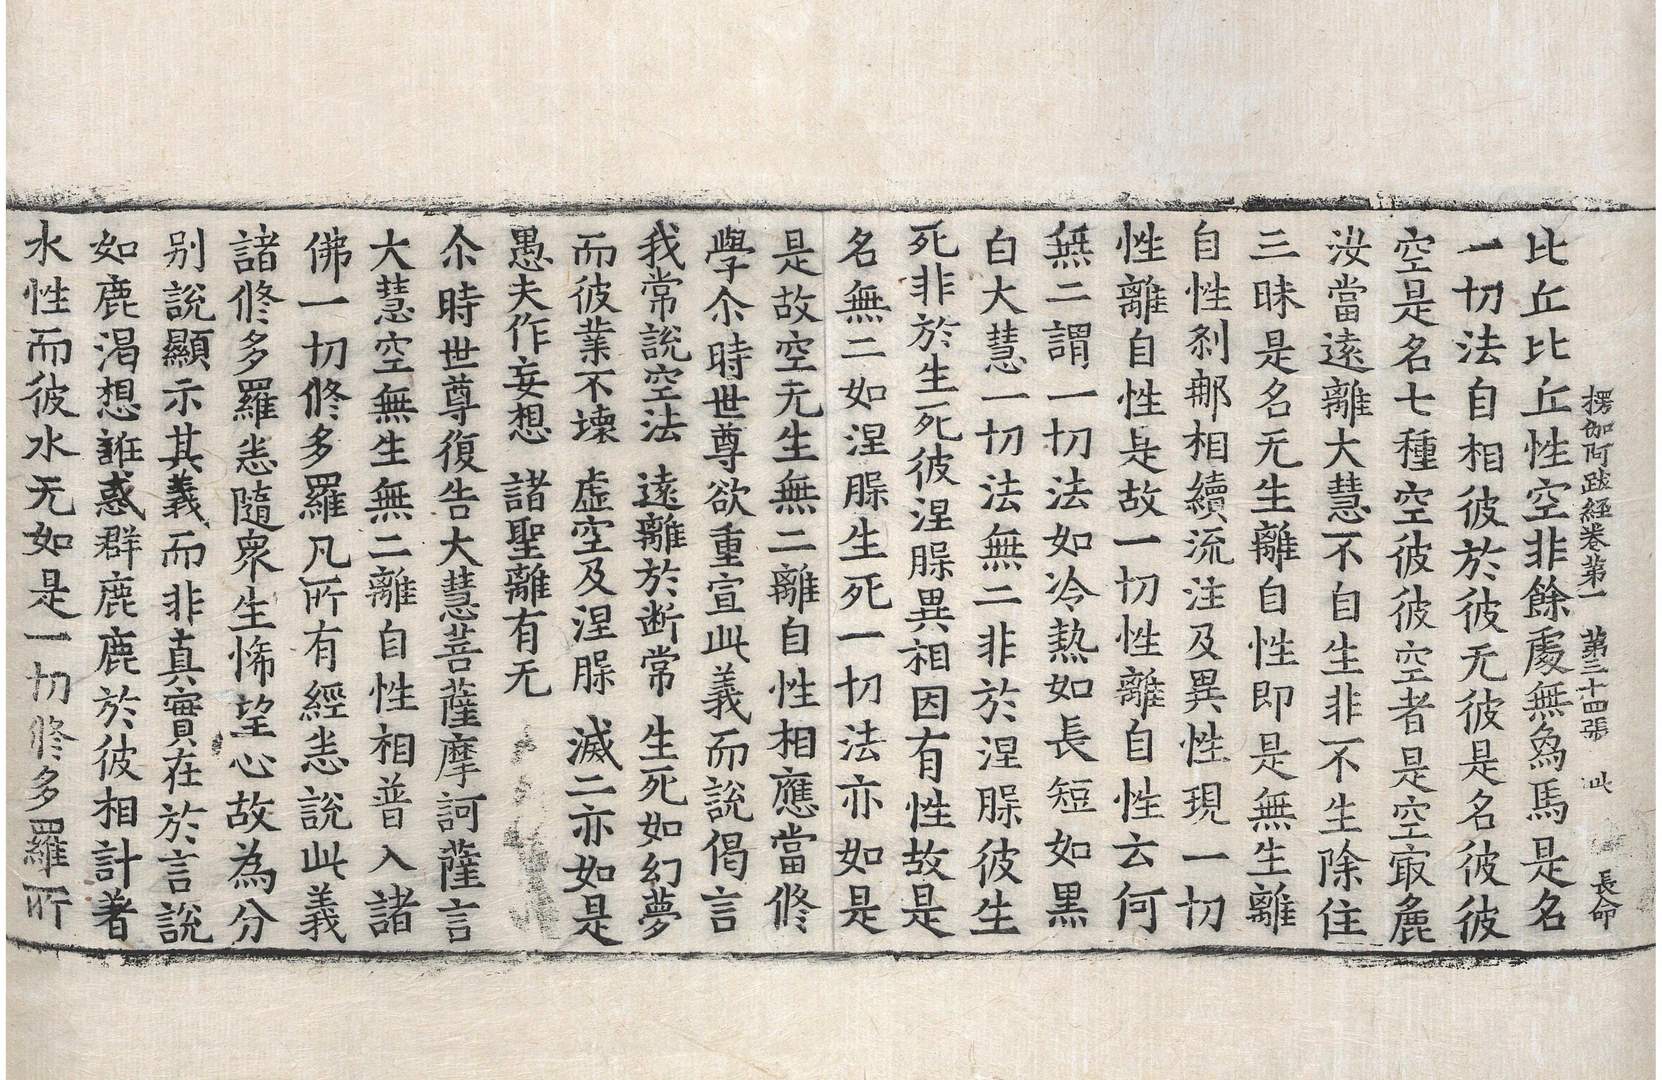 楞伽阿跋經卷第一 第三十四張 此 長命
比丘比丘性空非餘處無烏馬是名
一切法自相彼於彼无彼是名彼彼
空是名七種空彼彼空者是空㝡麁
汝當遠離大慧不自生非不生除住
三昧是名无生離自性即是無生離
自性刹那相續流注及異性現一切
性離自性是故一切性離自性云何
無二謂一切法如冷熱如長短如黒
白大慧一切法無二非於涅槃彼生
死非於生死彼涅槃異相因有性故是
名無二如涅槃生死一切法亦如是
是故空无生無二離自性相應當修
學尒時世尊欲重宣此義而說偈言
我常說空法 遠離於断常 生死如幻夢
而彼業不壞 虛空及涅槃 滅二亦如是
愚夫作妄想 諸聖離有无
尒時世尊復告大慧菩薩摩訶薩言
大慧空無生無二離自性相普入諸
佛一切修多羅凡所有經悉說此義
諸修多羅悉隨衆生悕望心故為分
别說顯示其義而非真實在於言說
如鹿渴想誑惑群鹿鹿於彼相計著
水性而彼水无如是一切修多羅所